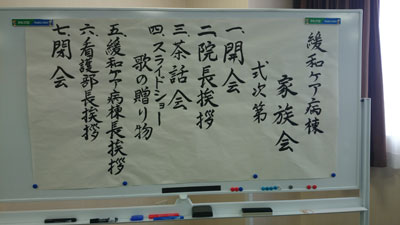 緩和ケア病棟
家族会
式次第
一.開会
二.院長挨拶
三.茶話会
四.スライドショー
歌の贈り物
五.緩和ケア病棟長挨拶
六.看護部長挨拶
七.閉会